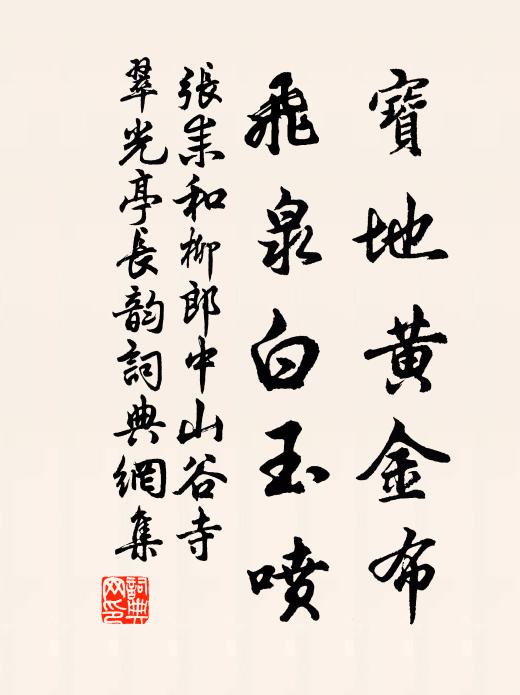 寶地黃金布
飛泉白玉噴
張耒和柳郎中山谷寺
翠光亭長韵詞典網集
詞典網印